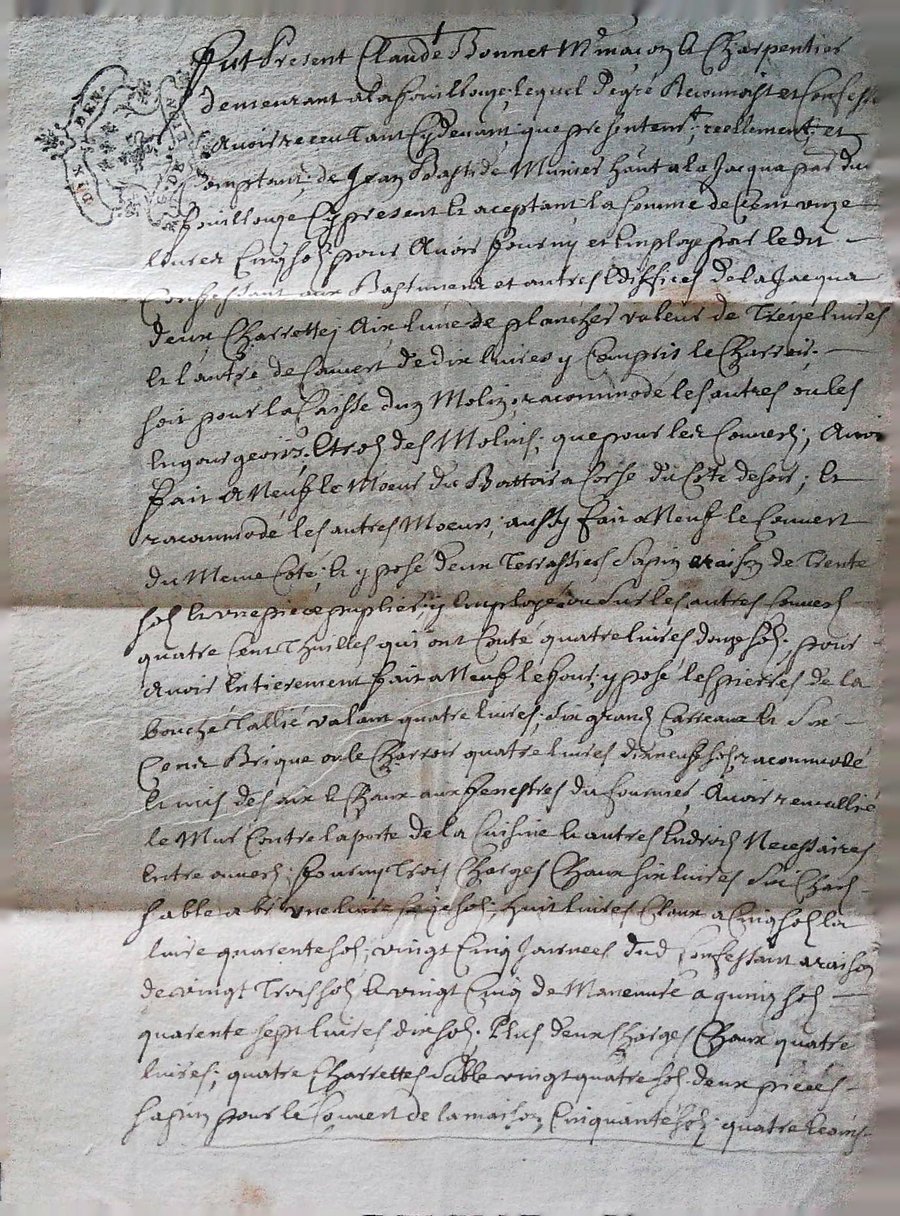 DIX DEN
Fut Present Claude Bonnet Me maçon & Charpentier
demeurant a la fouillouze, lequel de gré Reconnoist et Confesse
Avoir receu tant Cy devant que presentemt, reellement, et
Comptant, de Jean de Munier haut a la Jacqua par du
fouillouze Cy present & aceptant, la somme de Cent onze
livres Cinq sols pour Avoir fourny et Employé pour ledit
Confessant aux Bastimens et autres Ediffices de la Jacqua
deux Charrettes Aix lune de planches valeur de Treze livres
& l'autre de Couvert de dix livres y Compris le Charroir
soit pour la Caisse dun Molin, racommodé les autres ou les
des Molins; que pour les Couverts, Avoir
fait a Neuf le Moeur du Battoir a Corse du Cote de soir; &
racommodé les autres Moeurs; aussy fait a Neuf le Couvert
du Meme Coté; & y posé deux Terrassiers Sapin a raison de Trente
sols & une piece y Employé ou sur les autres Couverts
quatre Cent Thuilles qui ont Couté quatre livres douze sols; pour
Avoir Entierement fait a Neuf le four; y posé les pierres de la
bouche Tallié valant quatre livres; six grands Carreaux & six
Cent Brique ou le Charroir quatre livres dix neuf sols, racommodé
& mis des aix & Chaux aux fenestres du fournier, Avoir remallié
le Mur Contre la porte de la Cuisine & autres Endroits Necessaires
Entre autres; fourny Trois Charges Chaux six livres Six Chars
sable a bé une livre seize sols; huit livres Cloux a Cinq sols la
livre quarente sols; vingt Cinq Journées dud Confessant a raison
de vingt Trois sols & vingt Cinq de Maneuvre a quinze sols
quarente sept livres dix sols; Plus deux Charges Chaux quatre
livres; quatre Charrettes Sable vingt quatre sols deux pieces
sapin pour le Couvert de la maison Cinquante sols; quatre